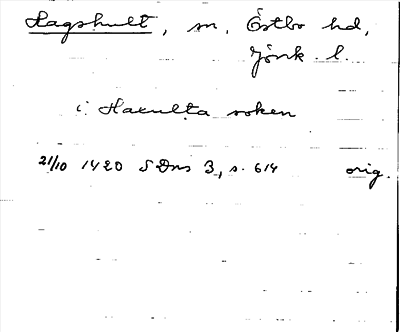 Hagshult, sn, Östbo hd,
Jönk. l.
i Haculta soken
21/10 1420 SDns 3, s. 614 orig.